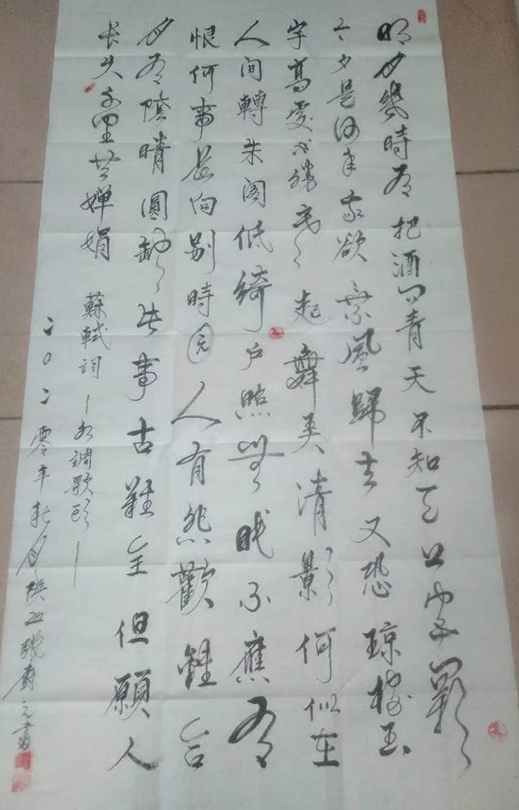 明月幾時有把酒问青天不知天上宮闕
今夕是何年我欲乘風歸去又恐琼樓玉
宇高處不勝寒起舞弄清影何似在
人间轉朱阁低綺户照無眠不應有
恨何事長向别時圆人有悲歡離合
月有陰晴圓缺此事古難全但願人
長久千里共嬋娟
蘇軾詞—水調歌頭—
二〇二零年秋月陕西